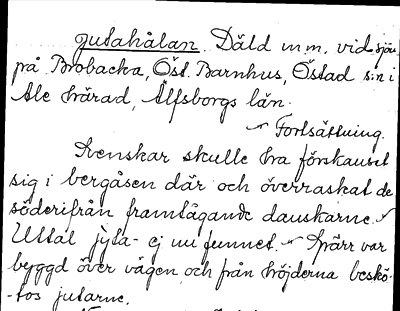 Jutahålan. Däld m.m. vid sjön
på Brobacka, Öst. Barnhus, Östad s:n i
Ale härad, Älfsborgs län.
Fortsättning.
Svenskar skulle ha förskansat
sig i bergåsen där och överraskat de
söderifrån framtågande danskarne.
Uttal jyta- ej nu funnet. Spärr var
byggd över vägen och från höjderna beskö-
-tos jutarne.